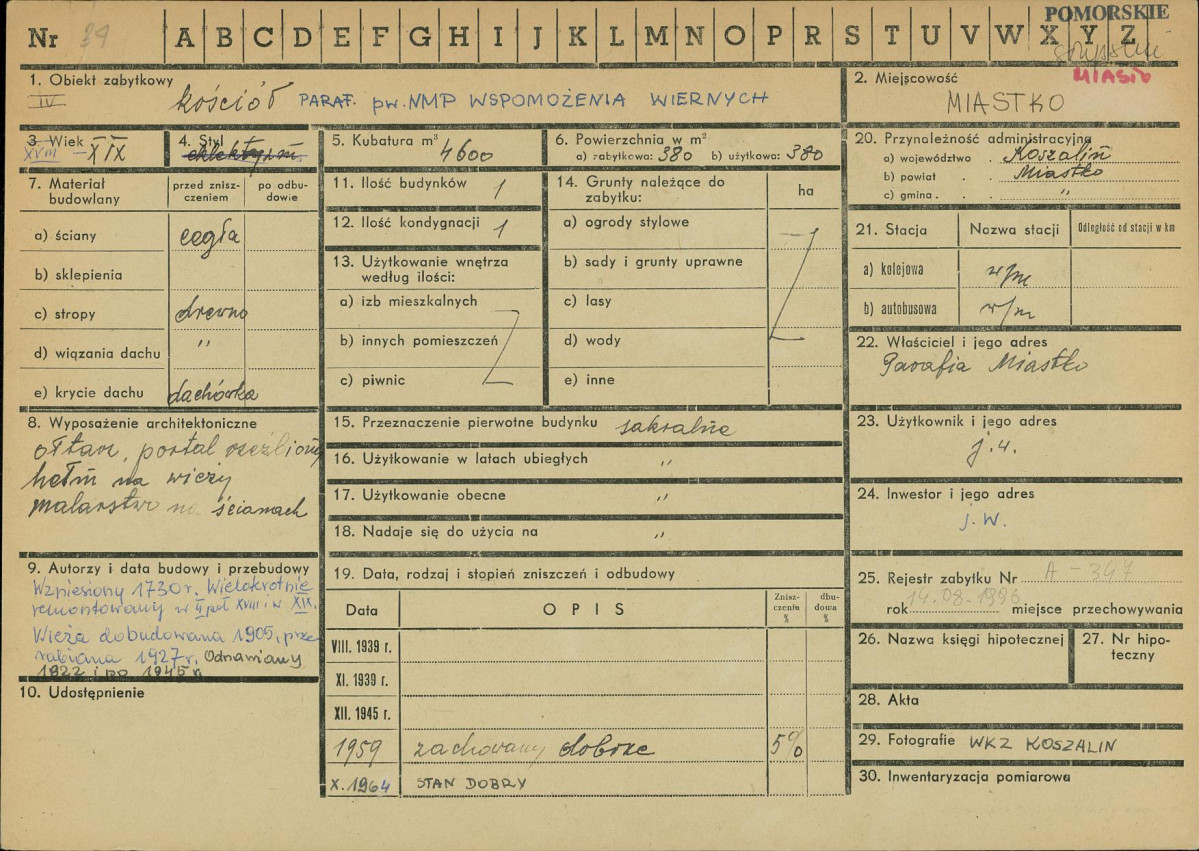 Nr 39 A B C D E F G H I J K L M N O P R S T U V W X Y Z
POMORSKIE
MIASTO
1. Obiekt zabytkowy
IV kościół PARAF. pw. NMP WSPOMOŻENIA WIERNYCH
2. Miejscowość
MIASTKO
3. Wiek
XVIII – XIX
4. Styl
eklektyzm
5. Kubatura m³ 4600
6. Powierzchnia w m²
a) zabytkowa: 380 b) użytkowa: 380
20. Przynależność administracyjna
a) województwo . Koszalin
b) powiat . . Miastko
c) gmina . . "
7. Materiał budowlany
przed zniszczeniem
po odbudowie
a) ściany cegła
b) sklepienia
c) stropy drewno
d) wiązania dachu "
e) krycie dachu dachówka
11. Ilość budynków 1
12. Ilość kondygnacji 1
13. Użytkowanie wnętrza
według ilości:
a) izb mieszkalnych
b) innych pomieszczeń
c) piwnic
14. Grunty należące do
zabytku:
ha
a) ogrody stylowe
b) sady i grunty uprawne
c) lasy
d) wody
e) inne
21. Stacja Nazwa stacji Odległość od stacji w km
a) kolejowa w/m
b) autobusowa w/m
22. Właściciel i jego adres
Parafia Miastko
8. Wyposażenie architektoniczne
ołtarz, portal rzeźbiony
hełm na wieży
malarstwo na ścianach
15. Przeznaczenie pierwotne budynku sakralne
16. Użytkowanie w latach ubiegłych "
17. Użytkowanie obecne "
18. Nadaje się do użycia na "
23. Użytkownik i jego adres
j.w.
24. Inwestor i jego adres
j.w.
9. Autorzy i data budowy i przebudowy
Wzniesiony 1730 r. Wielokrotnie
remontowany w II poł XVIII i w XIX.
Wieża dobudowana 1905, prze
rabiana 1927 r. Odnawiany
1922 i po 1945 r.
10. Udostępnienie
19. Data, rodzaj i stopień zniszczeń i odbudowy
Data OPIS Zniszczenia % dbudowa %
VIII. 1939 r.
XI. 1939 r.
XII. 1945 r.
1959 zachowany dobrze 5%
X. 1964 STAN DOBRY
25. Rejestr zabytku Nr A-347
rok 14.08.1996 miejsce przechowywania
26. Nazwa księgi hipotecznej
27. Nr hipoteczny
28. Akta
29. Fotografie WKZ KOSZALIN
30. Inwentaryzacja pomiarowa